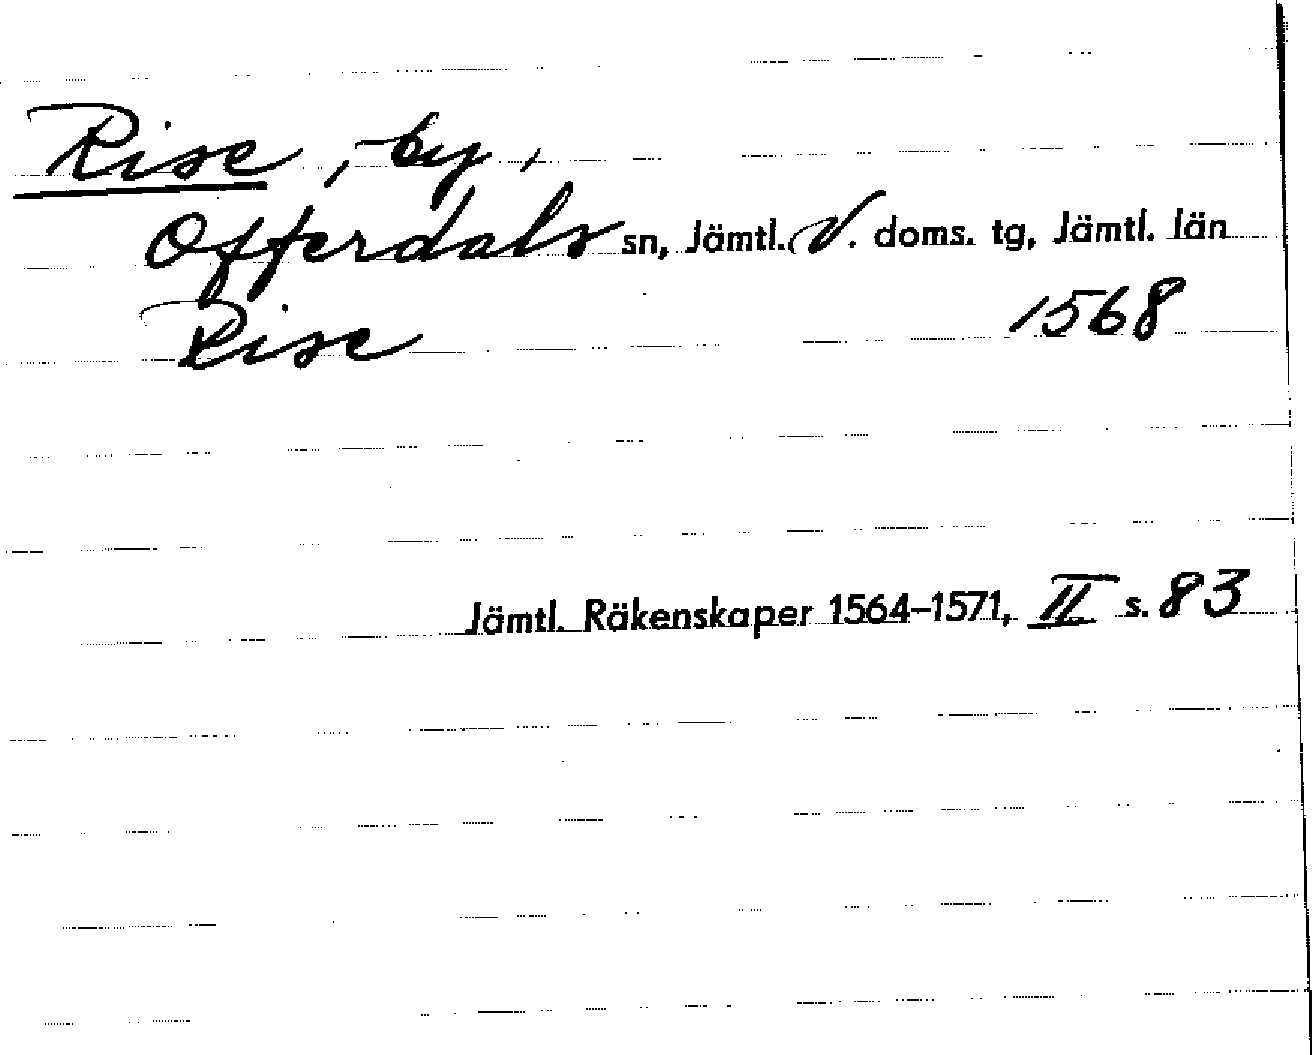 Rise, by,
Offerdals sn, Jämtl. V. doms. tg, Jämtl. län
Rise 1568
Jämtl. Räkenskaper 1564–1571, II s. 83